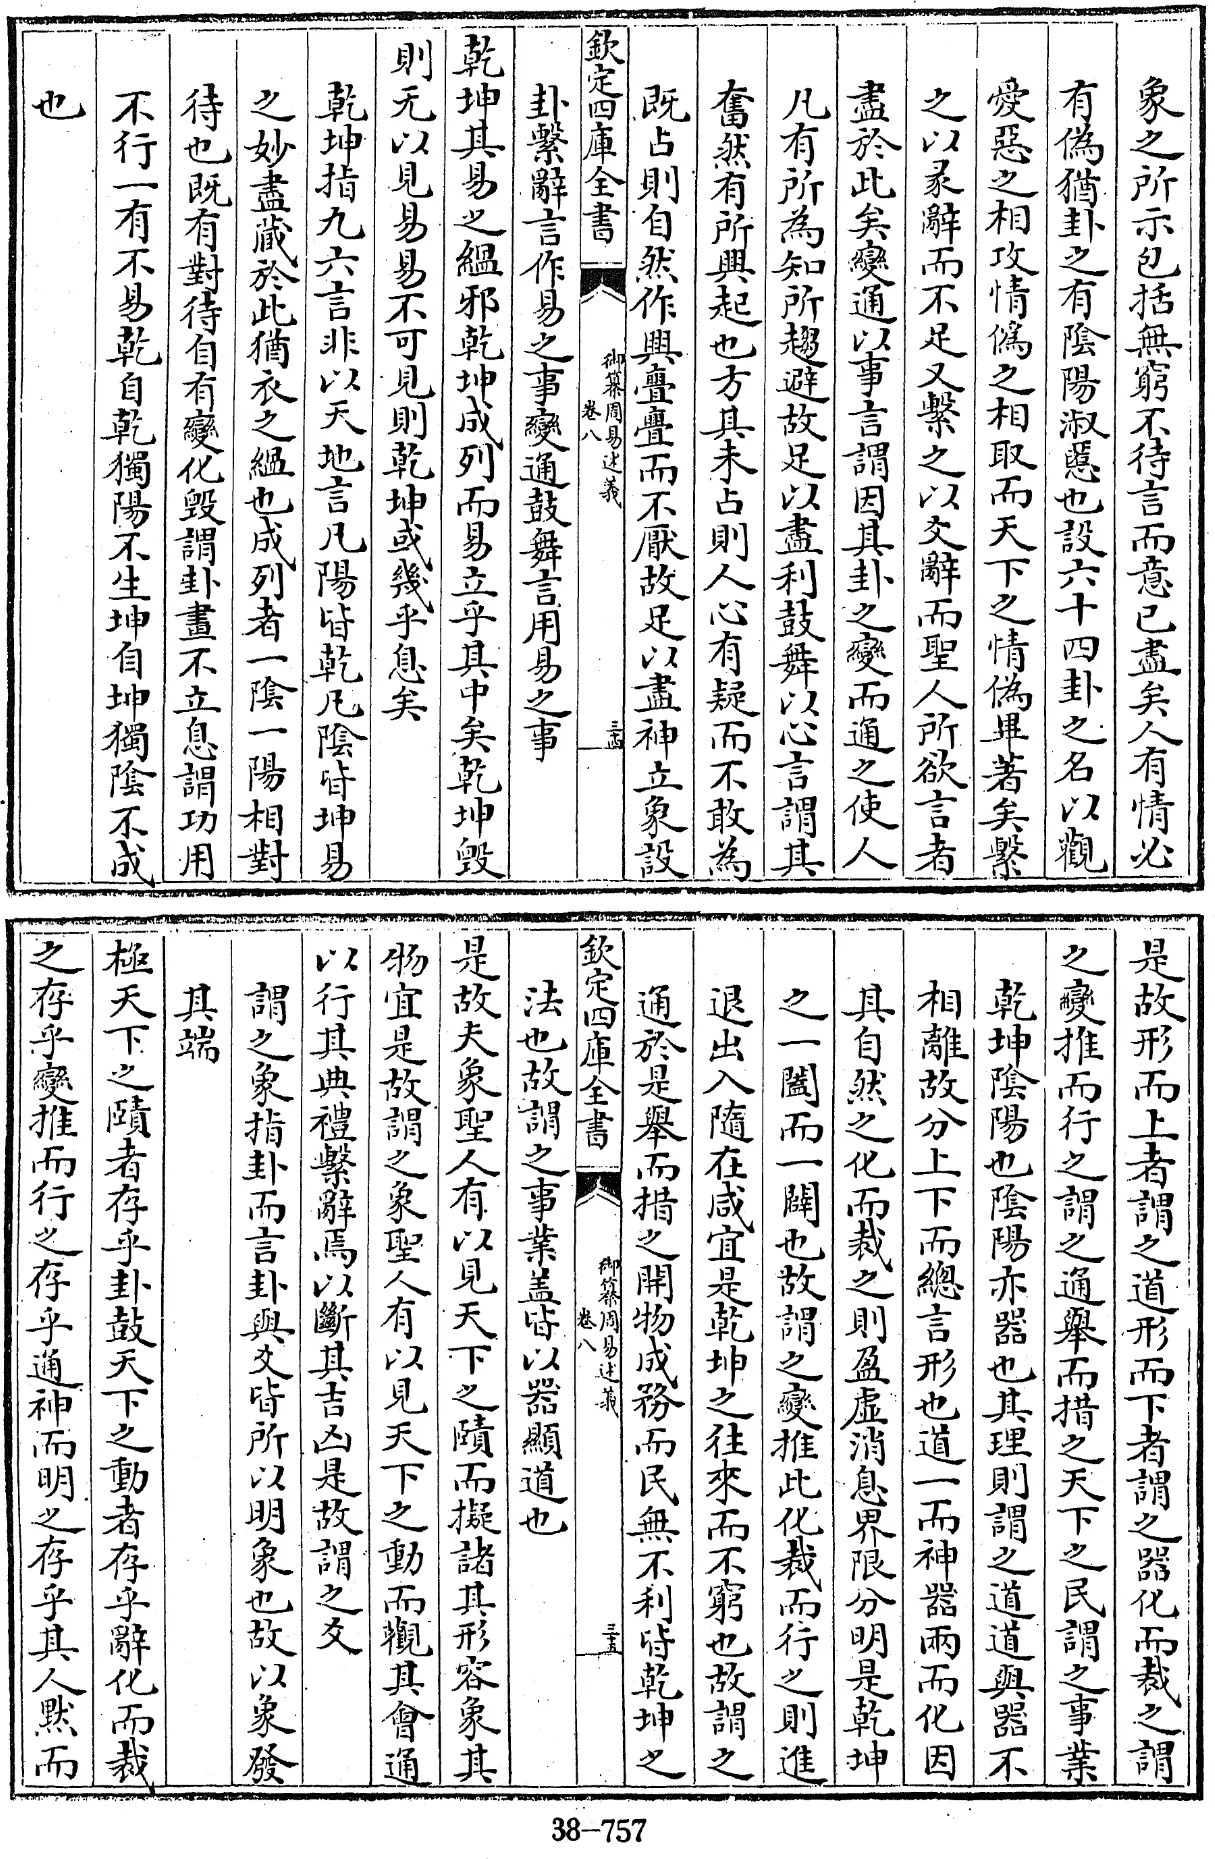 象之所示包括無窮不待言而意已盡矣人有情必
有偽猶卦之有陰陽淑慝也設六十四卦之名以觀
愛惡之相攻情偽之相取而天下之情偽畢著矣繫
之以彖辭而不足又繫之以爻辭而聖人所欲言者
盡於此矣變通以事言謂因其卦之變而通之使人
凡有所為知所趨避故足以盡利鼓舞以心言謂其
奮然有所興起也方其未占則人心有疑而不敢為
既占則自然作興亹亹而不厭故足以盡神立象設
欽定四庫全書
御纂周易述義
卷八
三十四
卦繫辭言作易之事變通鼓舞言用易之事
乾坤其易之縕邪乾坤成列而易立乎其中矣乾坤毀
則无以見易易不可見則乾坤或幾乎息矣
乾坤指九六言非以天地言凡陽皆乾凡陰皆坤易
之妙盡蔵於此猶衣之縕也成列者一陰一陽相對
待也既有對待自有變化毀謂卦畫不立息謂功用
不行一有不易乾自乾獨陽不生坤自坤獨陰不成
也
是故形而上者謂之道形而下者謂之器化而裁之謂
之變推而行之謂之通舉而措之天下之民謂之事業
乾坤陰陽也陰陽亦器也其理則謂之道道與器不
相離故分上下而總言形也道一而神器兩而化因
其自然之化而裁之則盈虛消息界限分明是乾坤
之一闔而一闢也故謂之變推此化裁而行之則進
退出入隨在咸宜是乾坤之往來而不窮也故謂之
通於是舉而措之開物成務而民無不利皆乾坤之
欽定四庫全書
御纂周易述義
卷八
三十五
法也故謂之事業盖皆以器顯道也
是故夫象聖人有以見天下之賾而擬諸其形容象其
物宜是故謂之象聖人有以見天下之動而觀其會通
以行其典禮繫辭焉以斷其吉凶是故謂之爻
謂之象指卦而言卦與爻皆所以明象也故以象發
其端
極天下之賾者存乎卦鼓天下之動者存乎辭化而裁
之存乎變推而行之存乎通神而明之存乎其人黙而
38-757